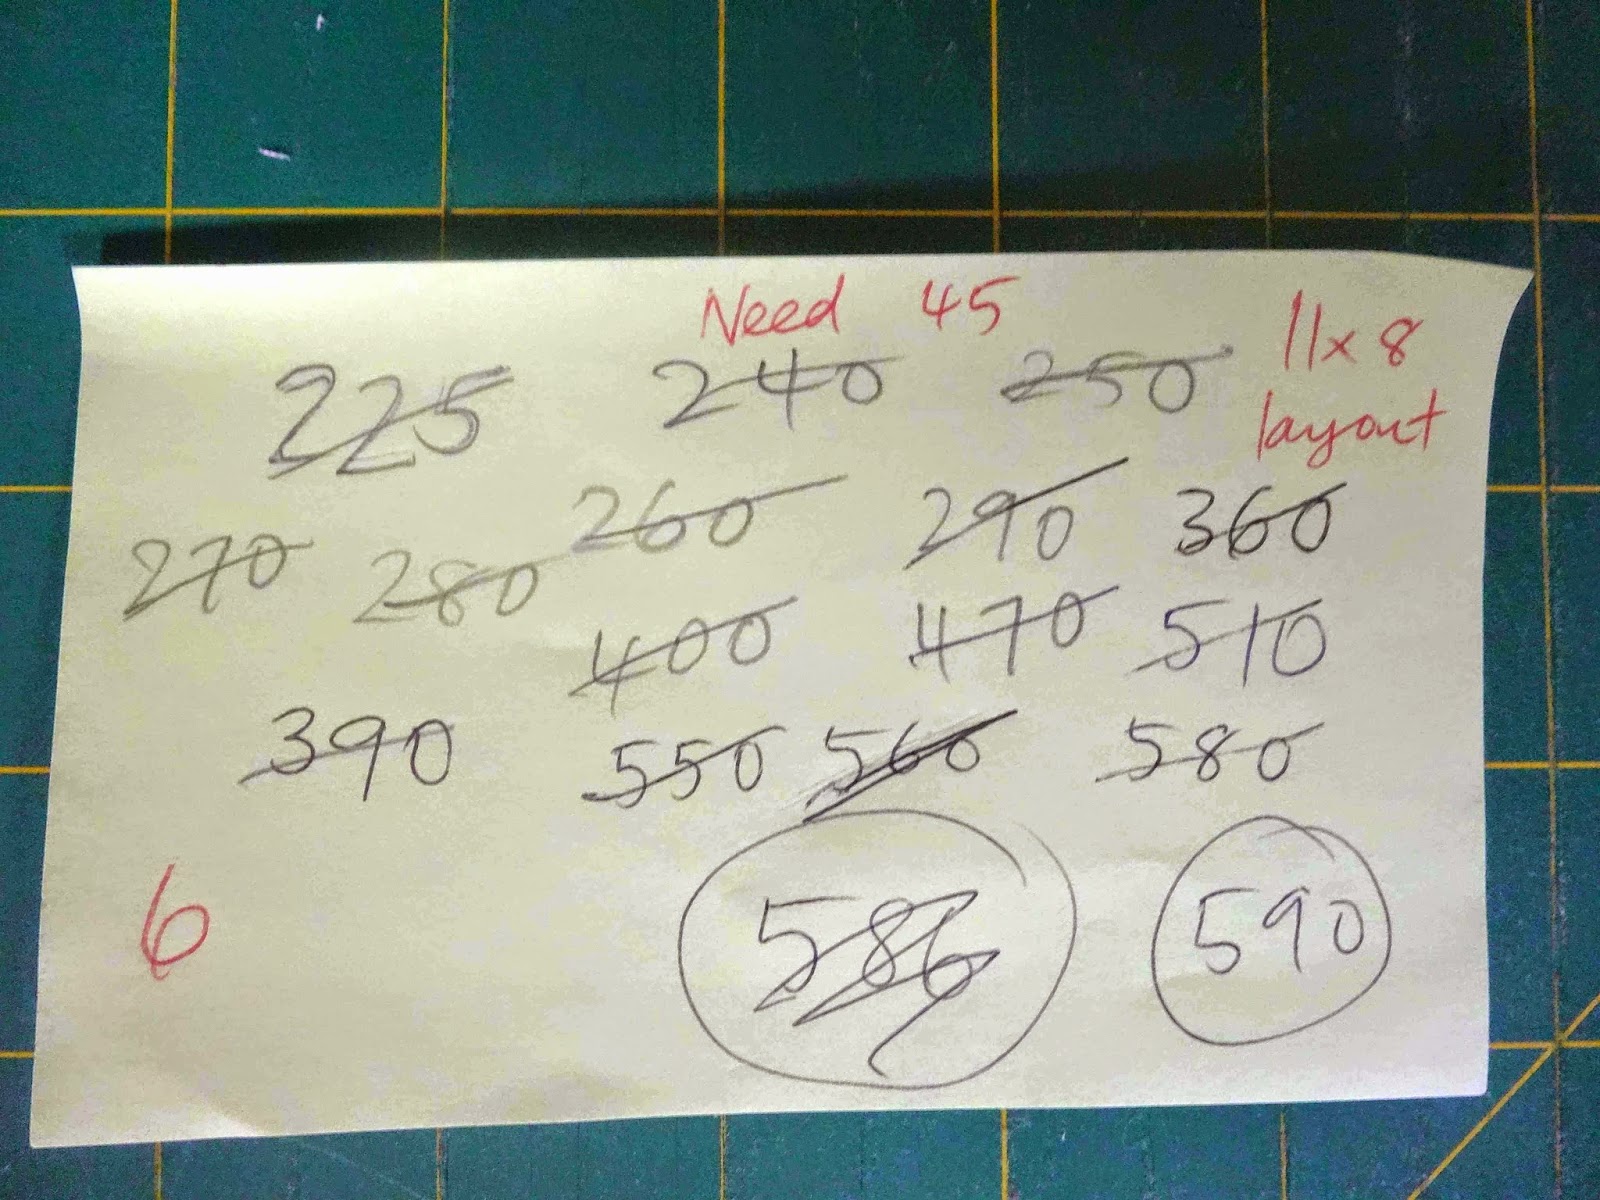 Need 45
11x8
layout
225 240 250
270 280 260 290 360
400 470 510
390 550 560 580
6 586 590